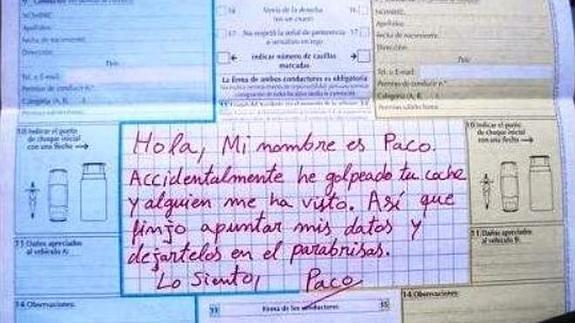 NOMBRE:
Apellidos:
Fecha de nacimiento:
Dirección:
País:
Tel. o E-mail:
Permiso de conducir n.º
Categoría (A, B,
16 Venía de la derecha 16
(en un cruce)
17 No respetó la señal de preferencia 17
o semáforo en rojo
indicar número de casillas
marcadas
La firma de ambos conductores es obligatoria
NOMBRE:
Apellidos:
Fecha de nacimiento:
Dirección:
País:
Tel. o E-mail:
Permiso de conducir n.º
Categoría (A, B,
10 Indicar el punto
de choque inicial
con una flecha
Hola, Mi nombre es Paco.
Accidentalmente he golpeado tu coche
y alguien me ha visto. Así que
finjo apuntar mis datos y
dejartelos en el parabrisas.
Lo Siento, Paco
10 Indicar el punto
de choque inicial
con una flecha
11 Daños apreciados
al vehículo A:
11 Daños apreciados
al vehículo B:
14 Observaciones:
Firma de los conductores
15
14 Observaciones: